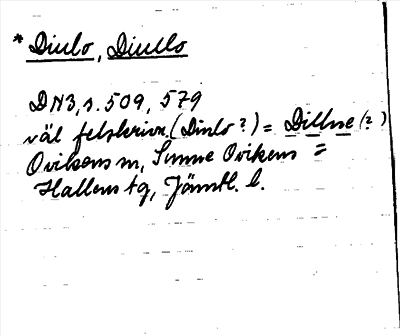 * Diulo, Diullo
DN3, s. 509, 579
väl felskrivn. (Dinlo ?) = Dillne (?)
Ovikens sn, Sunne Ovikens =
Hallens tg, Jämtl. l.